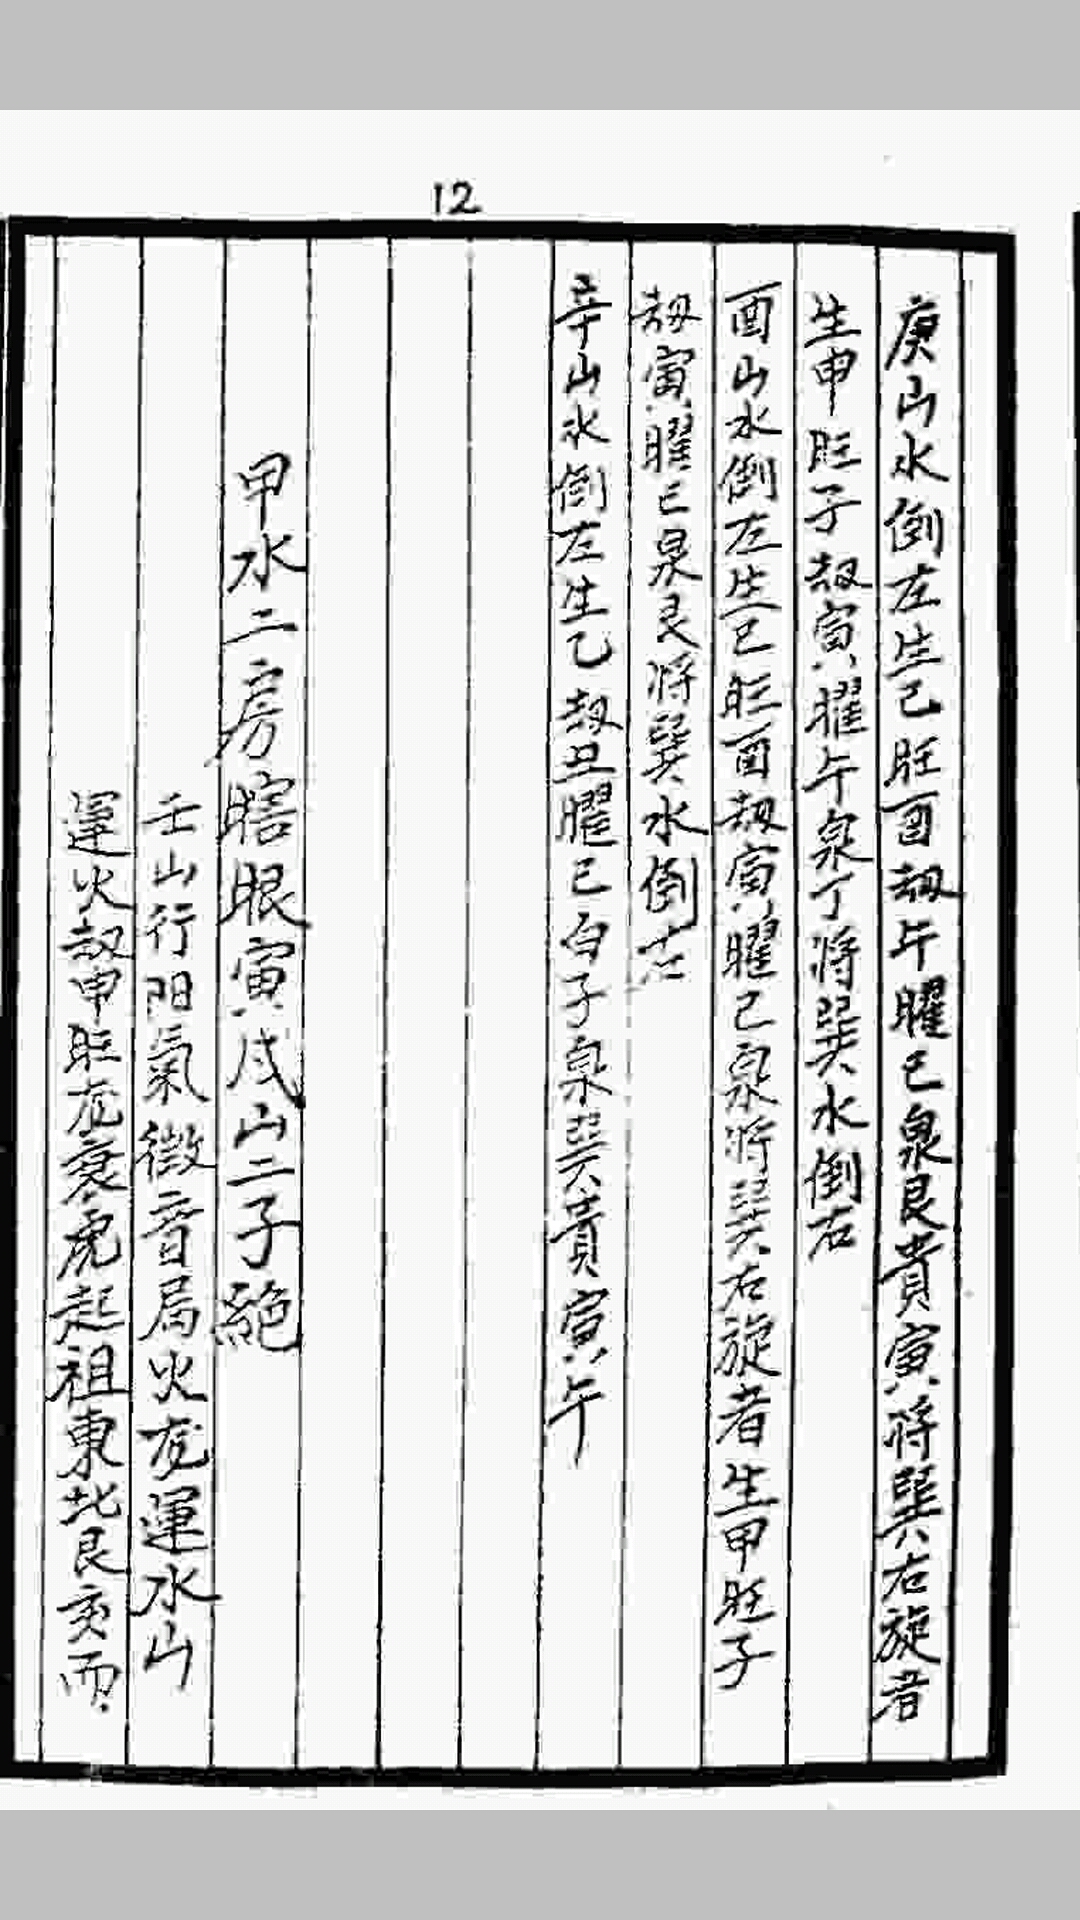 12
庚山水倒左生己旺酉劫午曜己泉艮貴寅將巽右旋者
生申旺子劫寅曜午泉丁將巽水倒右
酉山水倒左生己旺酉劫寅曜己泉將巽右旋者生甲旺子
劫寅曜己泉艮將巽水倒左
辛山水倒左生乙劫丑曜己白子泉巽貴寅午
甲水二房瞎眼寅戌山二子絕
壬山行阳氣微音局火龙運水山
運火劫申旺龙衰虎起祖東北艮亥而